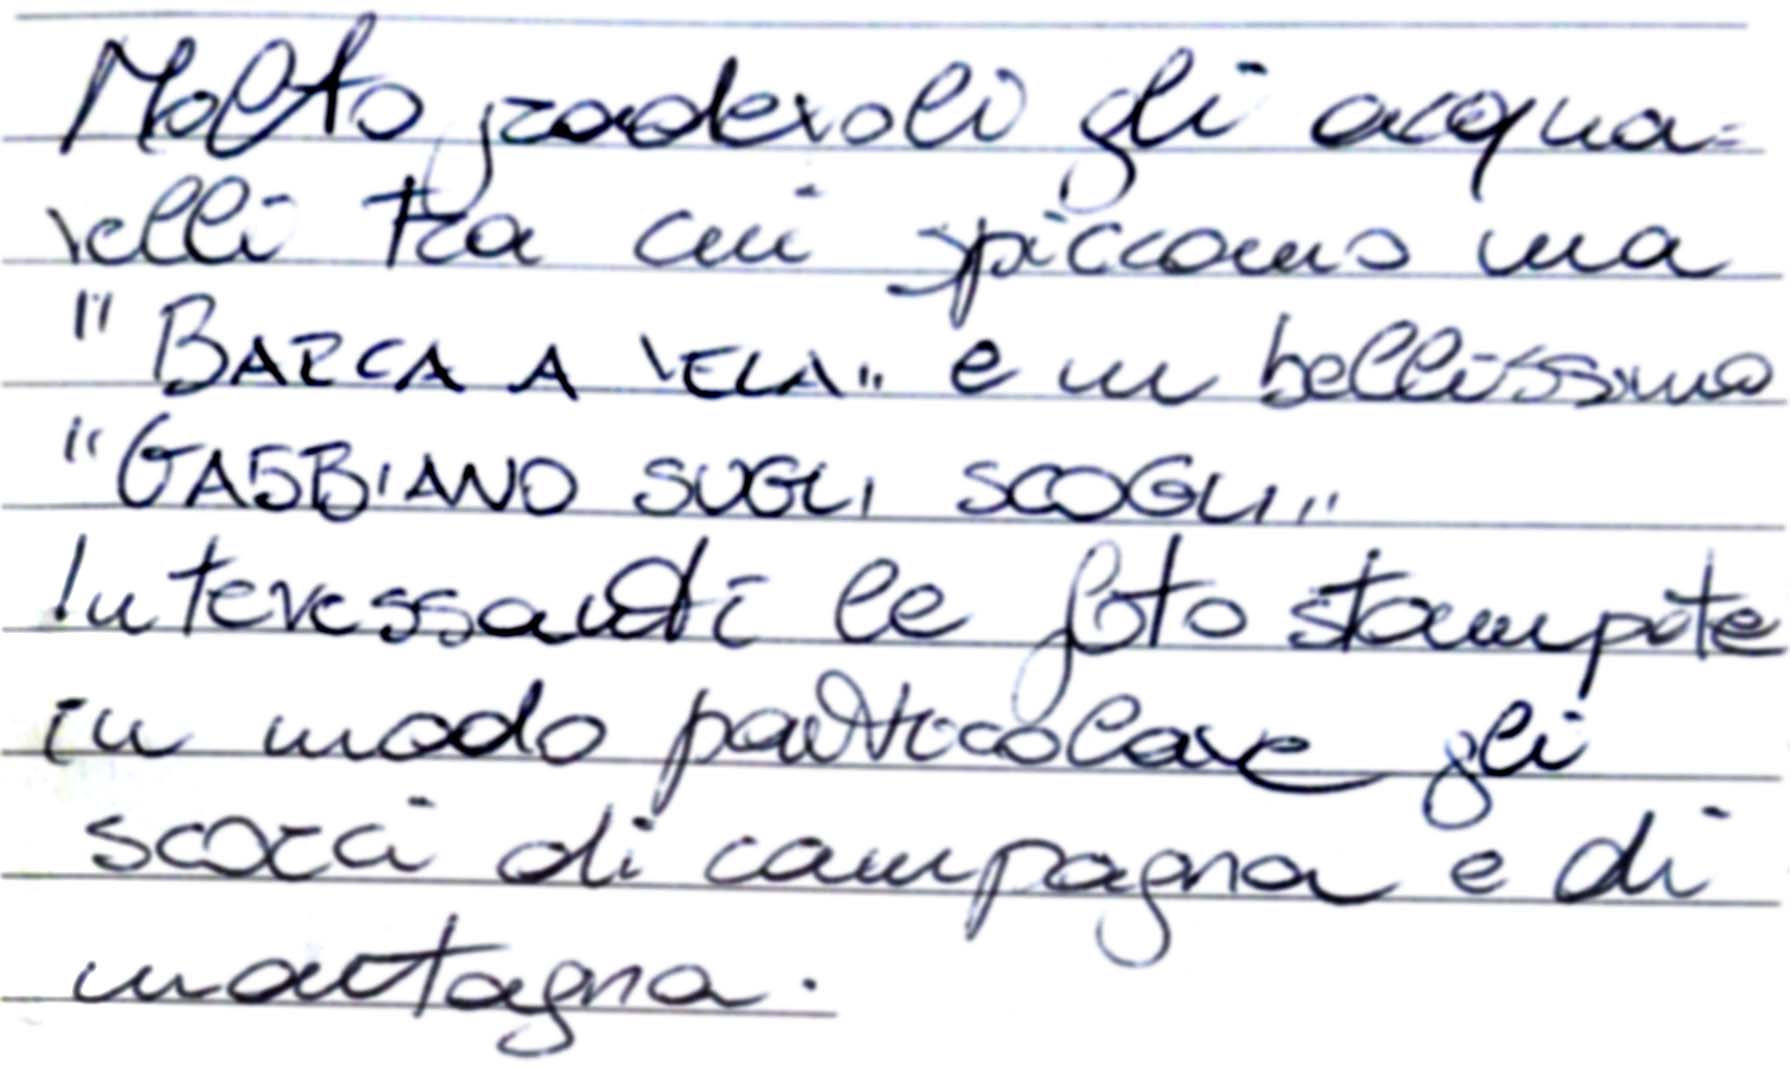 Molto gradevoli gli acqua=
relli tra cui spiccano una
"BARCA A VELA" e un bellissimo
"GABBIANO SUGLI SCOGLI"
Interessanti le foto stampate
in modo particolare gli
scorci di campagna e di
montagna.